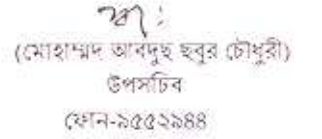 স্বা:
(মোহাম্মদ আবদুছ ছবুর চৌধুরী)
উপসচিব
ফোন-৯৫৫২৯৪৪